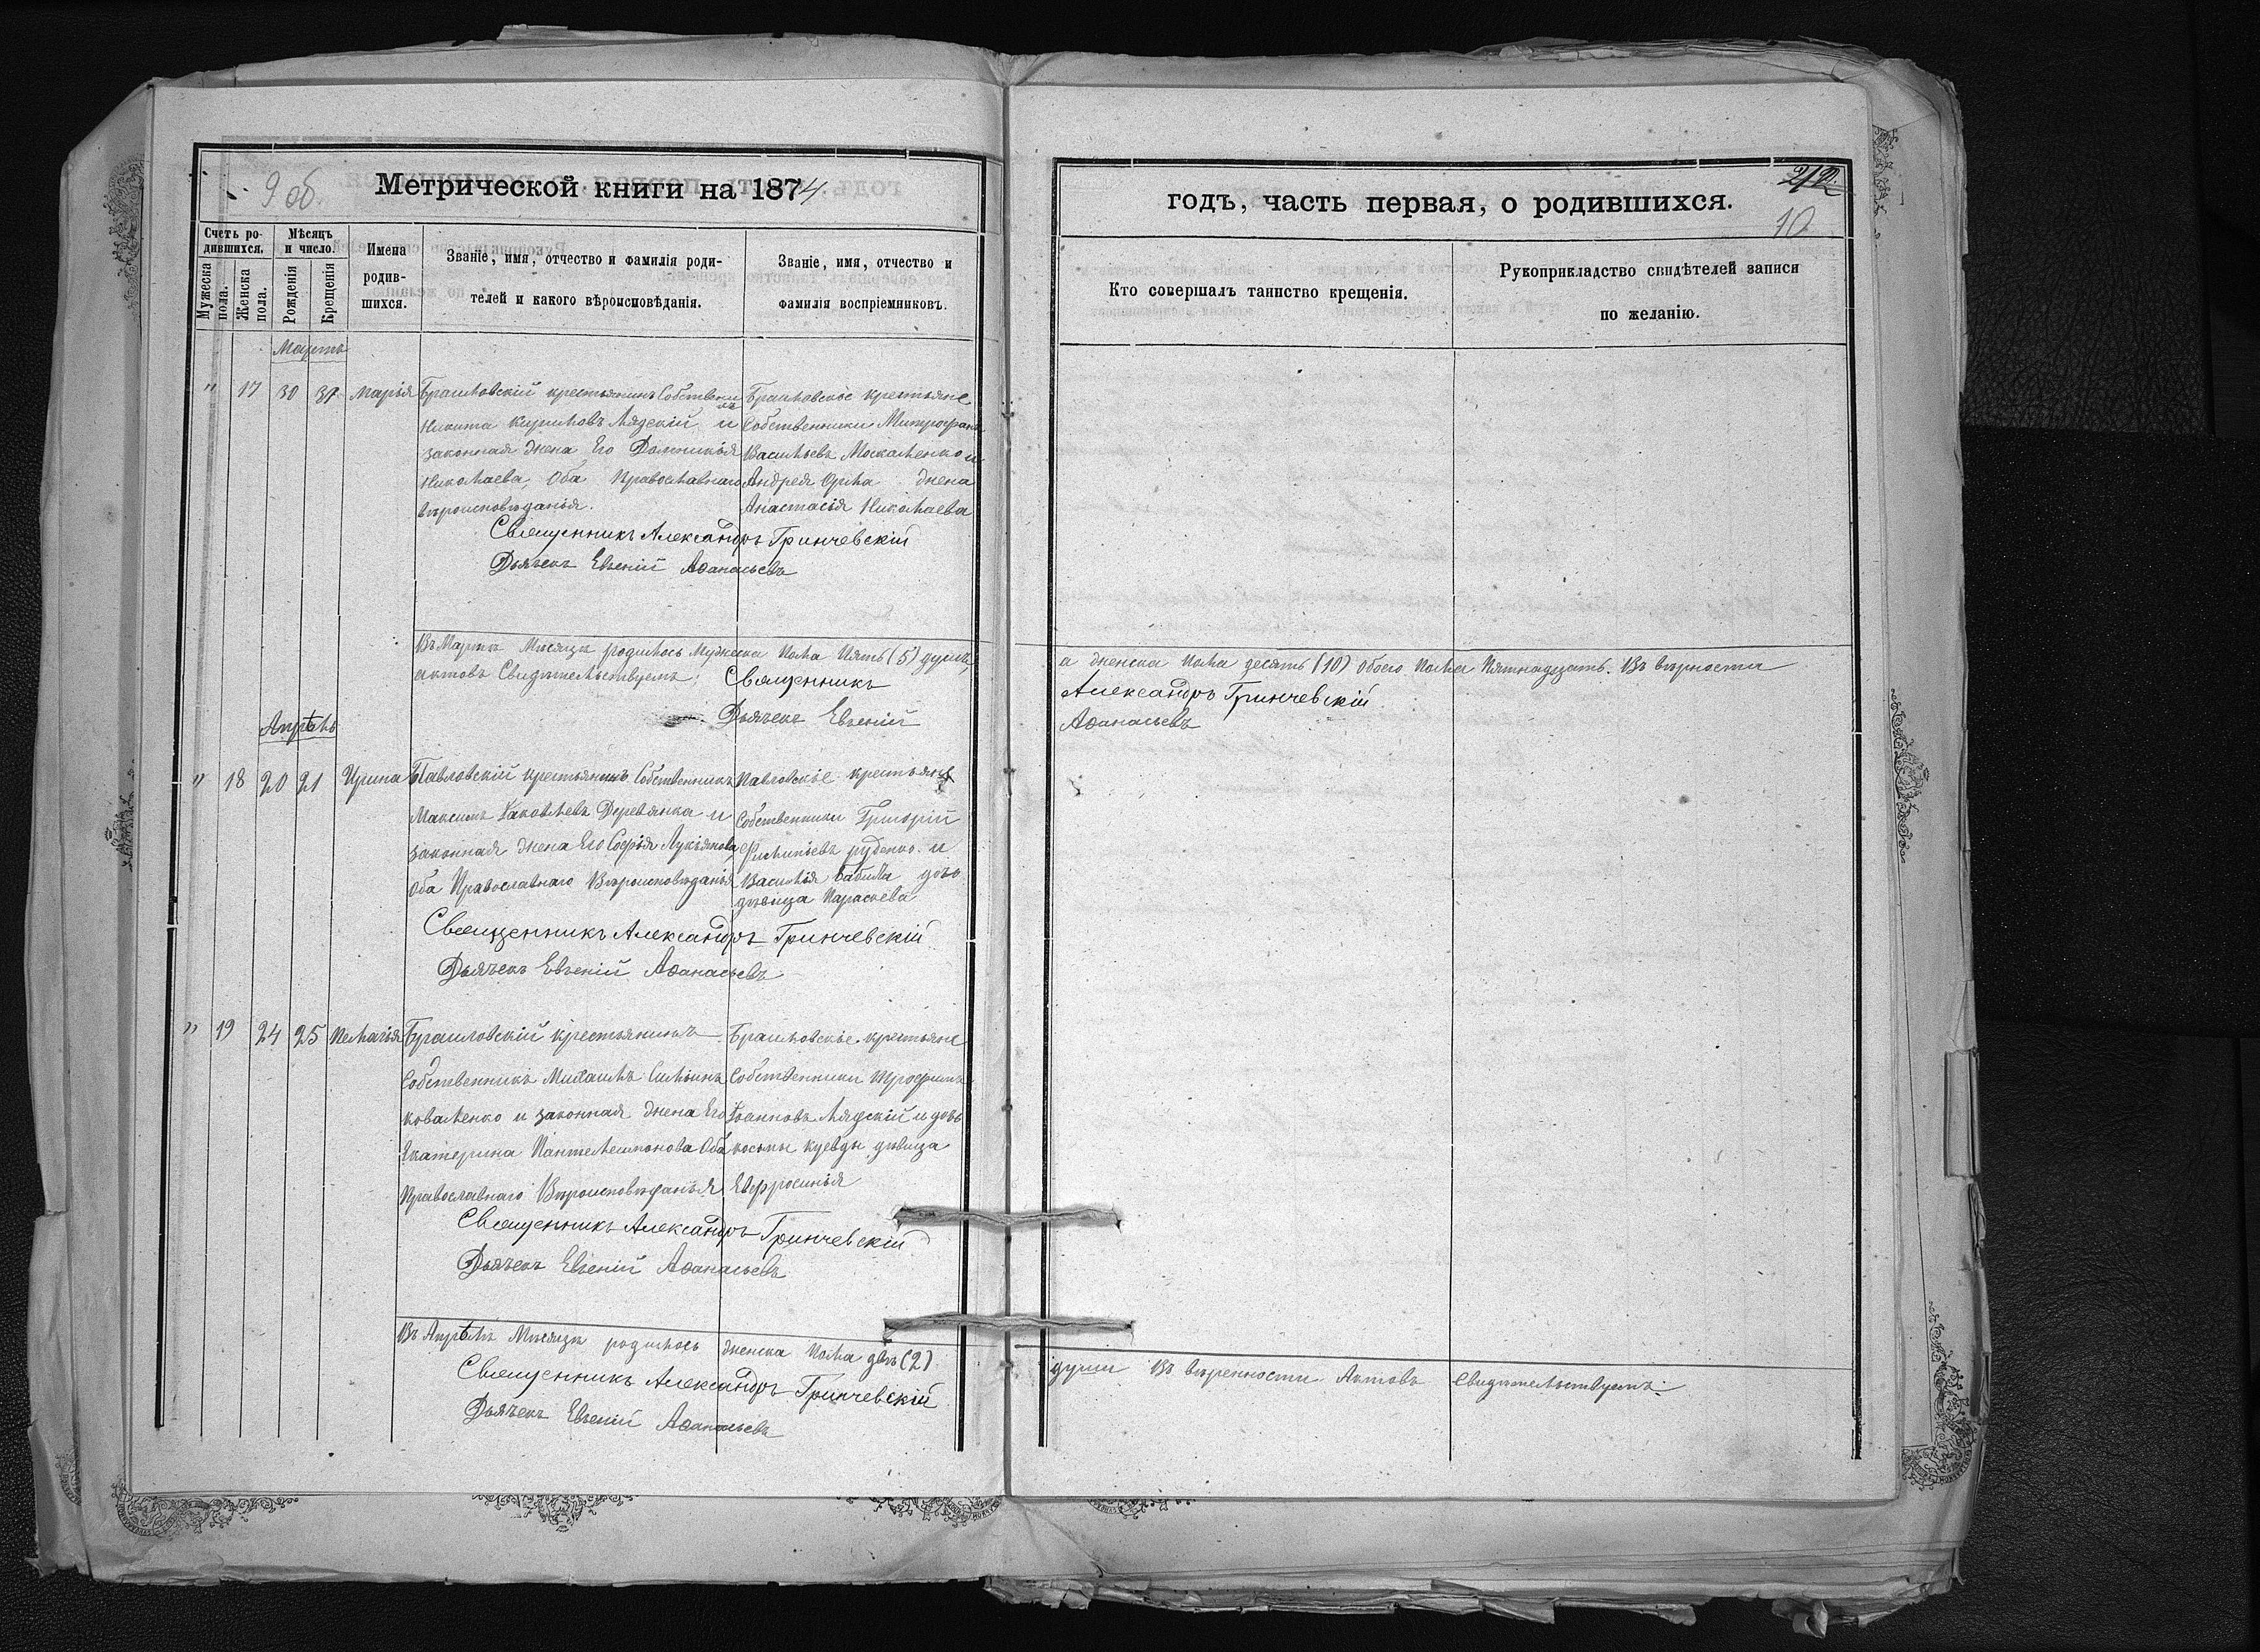 9 об.
Метрической книги на 1874
Счетъ ро-
дившихся.
Мѣсяцъ
и число.
Мужеска
пола.
Женска
пола.
Рожденія
Крещенія
Имена
родив-
шихся.
Званіе, имя, отчество и фамилія роди-
телей и какого вѣроисповѣданія.
Званіе, имя, отчество и
фамилія воспріемниковъ.
Мартъ
" 17 30 31 Марія
Браиловскій крестьянинъ Собственникъ
Никита Кириловъ Лядскій и
законная жена Его Домникія
Николаева Оба Православнаго
вѣроисповѣданія.
Браиловскіе крестьяне
Собственники Митрофанъ
Васильевъ Москаленко и
Андрея Орла жена
Анастасія Николаева
Священникъ Александръ Гринчевскій
Дьячекъ Евгеній Аѳанасьевъ
Въ Мартѣ Мѣсяцѣ родилось Мужеска пола Пять (5) душъ,
актовъ Свидѣтельствуемъ: Священникъ
Дьячекъ Евгеній
Апрѣль
" 18 20 21 Ирина
Павловскій крестьянинъ Собственникъ
Максимъ Яковлевъ Деревянка и
законная жена Его Софія Лукьянова,
Оба Православнаго Вѣроисповѣданія
Павловскіе крестьяне
Собственники Григорій
Филипьевъ Руденко и
Василія Бабила дочь
дѣвица Параскева
Священникъ Александръ Гринчевскій
Дьячекъ Евгеній Аѳанасьевъ
" 19 24 25 Пелагія
Браиловскій крестьянинъ
Собственникъ Михаилъ Сильинъ
Коваленко и законная жена Его
Екатерина Пантелеимонова Оба
Православнаго Вѣроисповѣданія
Браиловскіе крестьяне
Собственники Трофимъ
Іоанновъ Лядскій и дочь
Косьмы Куевды дѣвица
Евфросинія
Священникъ Александръ Гринчевскій
Дьячекъ Евгеній Аѳанасьевъ
Въ Апрѣлѣ Мѣсяцѣ родилось женска пола двѣ (2)
Священникъ Александръ Гринчевскій
Дьячекъ Евгеній Аѳанасьевъ
10
годъ, часть первая, о родившихся.
Кто совершалъ таинство крещенія.
Рукоприкладство свидѣтелей записи
по желанію.
а женска пола десять (10) обоего пола Пятнадцать. Въ вѣрности
Александръ Гринчевскій
Аѳанасьевъ
души Въ вѣренности Актовъ Свидѣтельствуемъ: